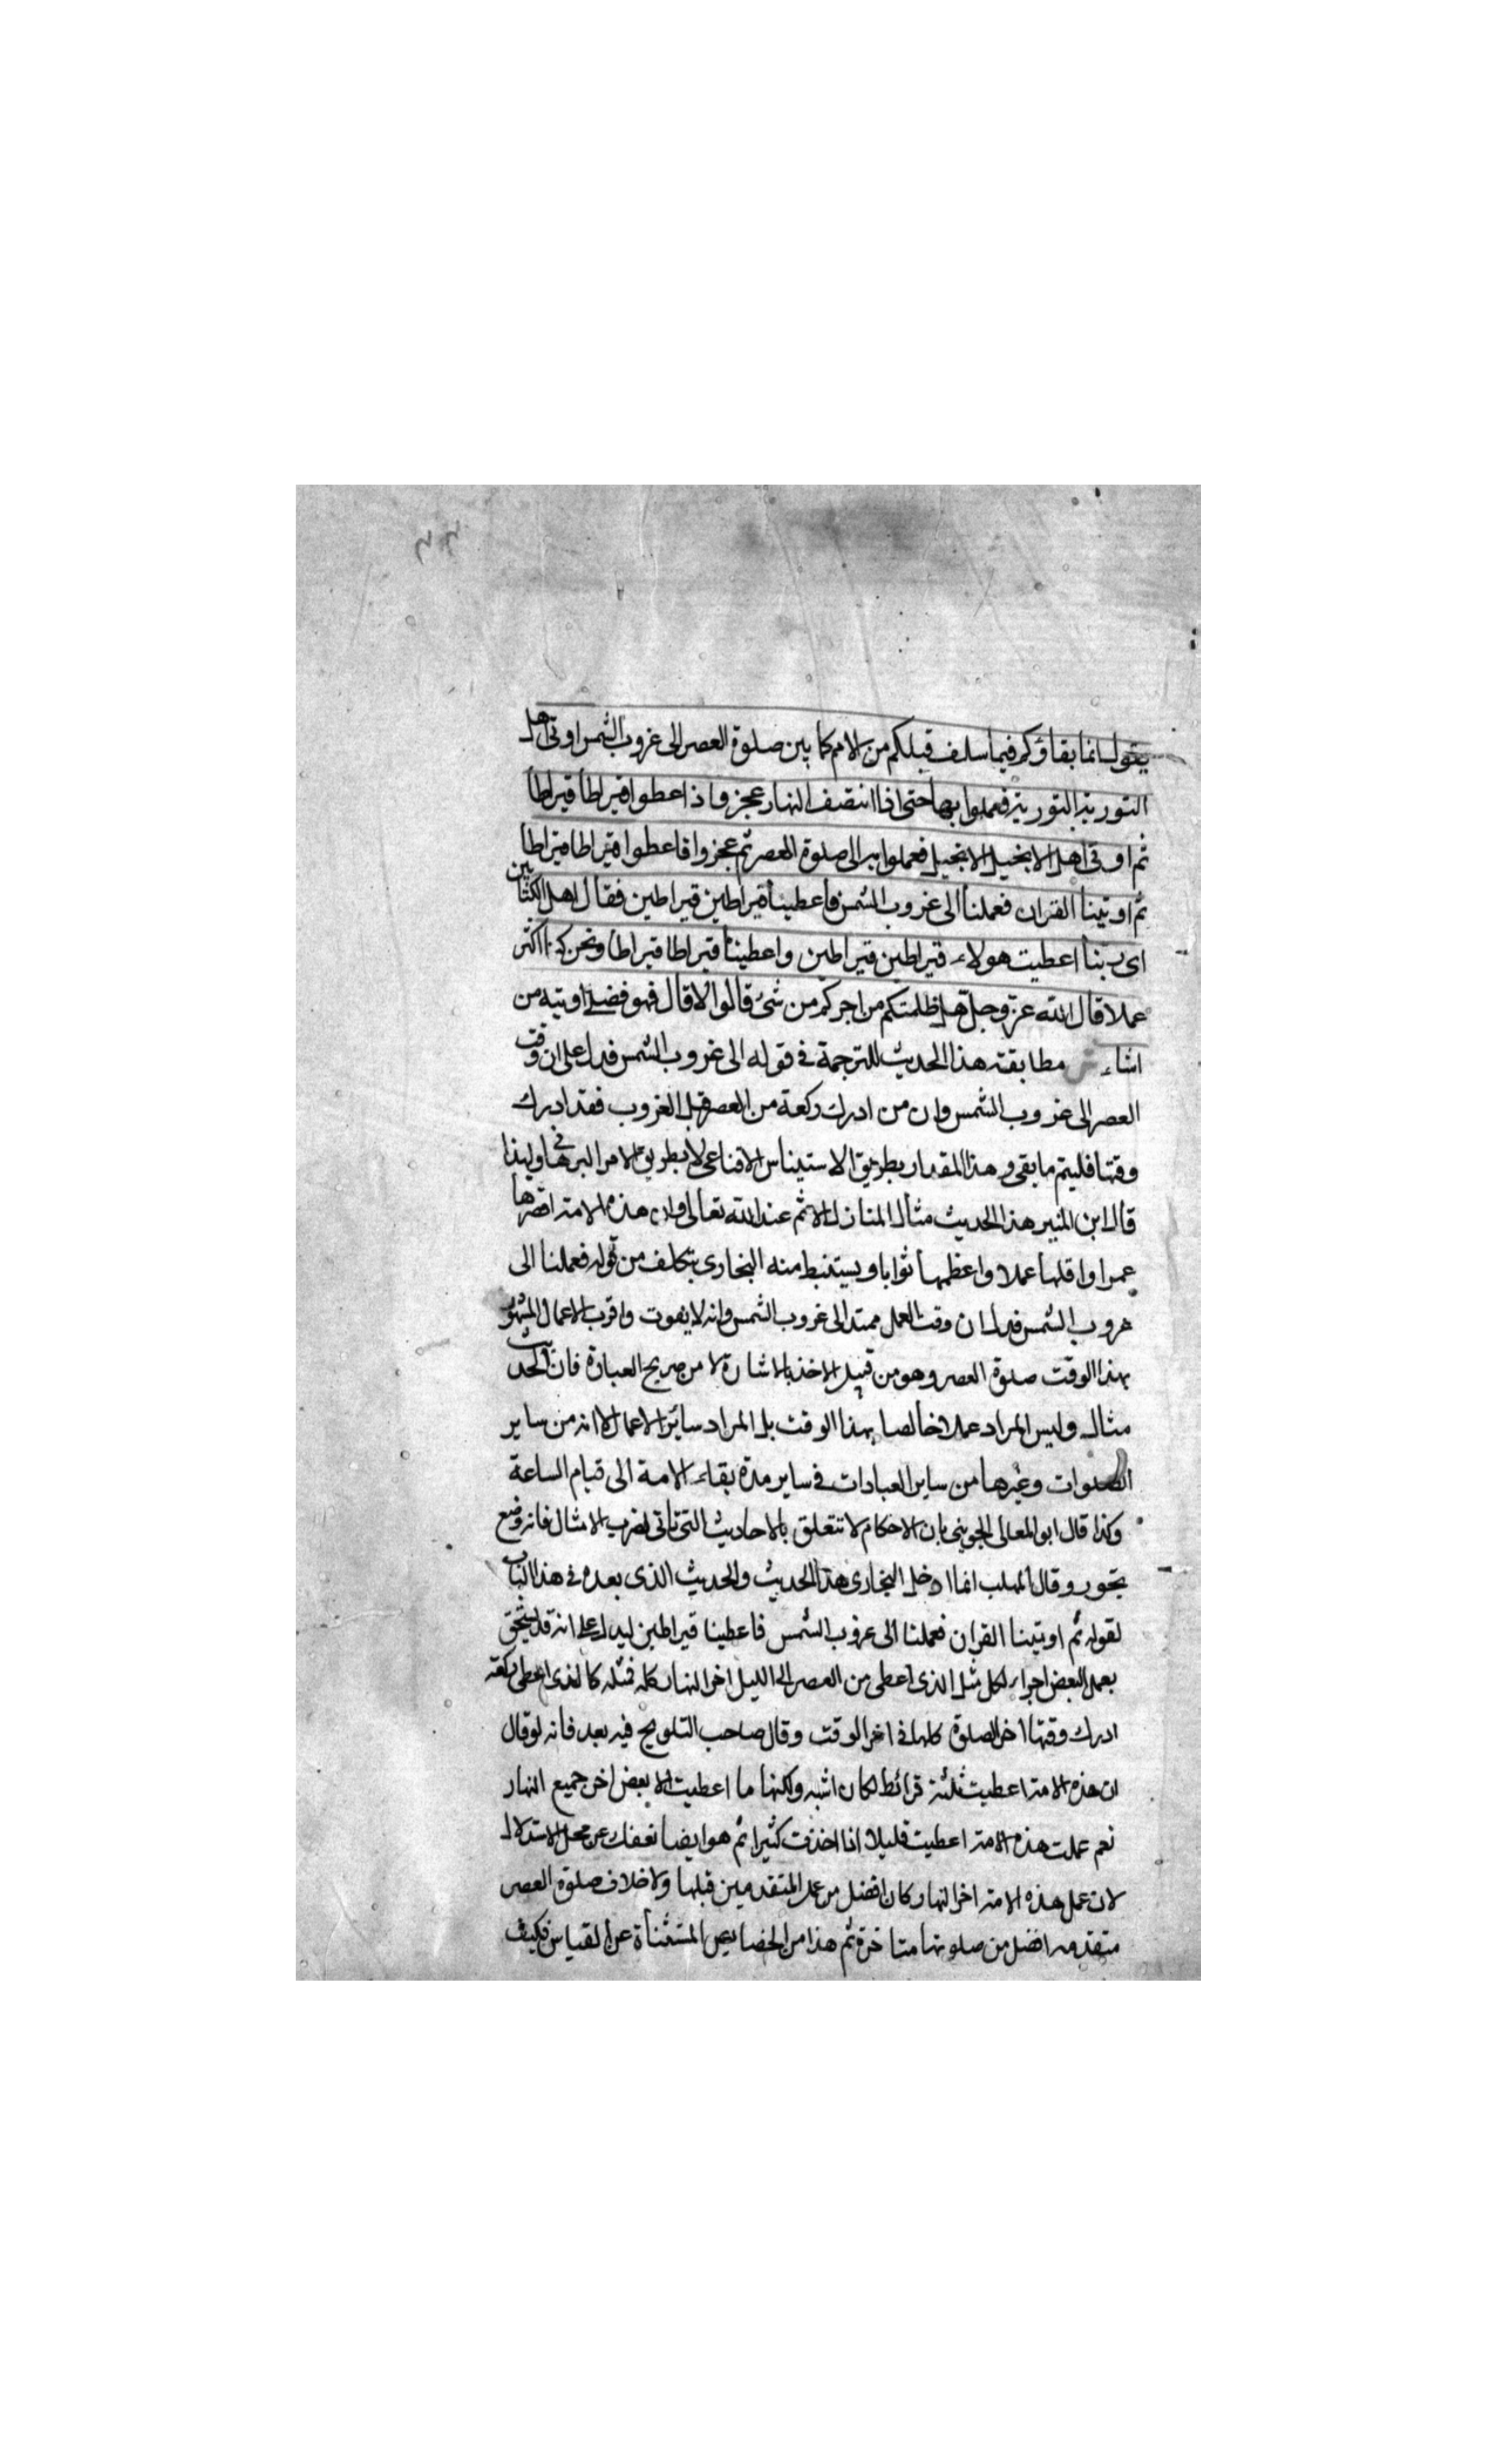 يقول انما بقاؤكم فيما سلف قبلكم من الامم كما بين صلوة العصر الى غروب الشمس اوتى اهل
التورية التورية فعملوا بها حتى اذا انتصف النهار عجزوا فاعطوا قيراطا قيراطا
ثم اوتى اهل الانجيل الانجيل فعملوا به الى صلوة العصر ثم عجزوا فاعطوا قيراطا قيراطا
ثم اوتينا القران فعملنا الى غروب الشمس فاعطينا قيراطين قيراطين فقال اهل الكتابين
اى ربنا اعطيت هولاء قيراطين قيراطين واعطيتنا قيراطا قيراطا ونحن كنا اكثر
عملا قال الله عز وجل هل ظلمتكم من اجركم من شئ قالوا لا قال فهو فضلى اوتيه من
اشاء ش مطابقته هذا الحديث للترجمة فى قوله الى غروب الشمس فدل على ان وقت
العصر الى غروب الشمس وان من ادرك ركعة من العصر قبل الغروب فقد ادرك
وقتها فليتم ما بقى وهذا المقدار بطريق الاستيناس الاقناعى لا بطريق الامر البرهانى ولهذا
قال ابن المنير هذا الحديث مثال لمنازل الامم عند الله تعالى وان هذه الامة اقصرها
عمرا واقلها عملا واعظمها ثوابا ويستنبط منه البخارى بتكلف من قوله فعملنا الى
غروب الشمس فدل ان وقت العمل ممتد الى غروب الشمس وانه لا يفوت واقرب الاعمال المشهور
بهذا الوقت صلوة العصر وهو من قبيل الاخذ بالاشارة لا من صريح العبارة فان الحديث
مثال وليس المراد عملا خالصا بهذا الوقت بل المراد سائر الاعمال الا انه من ساير
الصلوات وغيرها من ساير العبادات فى ساير مدة بقاء الامة الى قيام الساعة
وكذا قال ابو المعالى الجوينى بان الاحكام لا تتعلق بالاحاديث التى تاتى لضرب الامثال فانه موضع
تجوز وقال المهلب انما ادخل البخارى هذا الحديث والحديث الذى بعده فى هذا الباب
لقوله ثم اوتينا القران فعملنا الى غروب الشمس فاعطينا قيراطين ليدل على انه قد يستحق
بعمل البعض اجر الكل مثل الذى اعطى من العصر الى الليل اجر النهار كله فمثله كالذى اعطى ركعة
ادرك وقتها اجر الصلوة كلها فى اخر الوقت وقال صاحب التلويح فيه بعد فانه لو قال
ان هذه الامة اعطيت ثلثة قرائط لكان اشبه ولكنها ما اعطيت الا بعض اجر جميع النهار
نعم عملت هذه الامة اعطيت قليلا اذا اخذت كثيرا ثم هو ايضا نعفك عن محل الاستدلال
لان عمل هذه الامة اخر النهار كان افضل من عمل المتقدمين قبلها ولا خلاف صلوة العصر
متقدمه افضل من صلوتها متاخرة ثم هذا من الخصايص المستثناة عن القياس فكيف